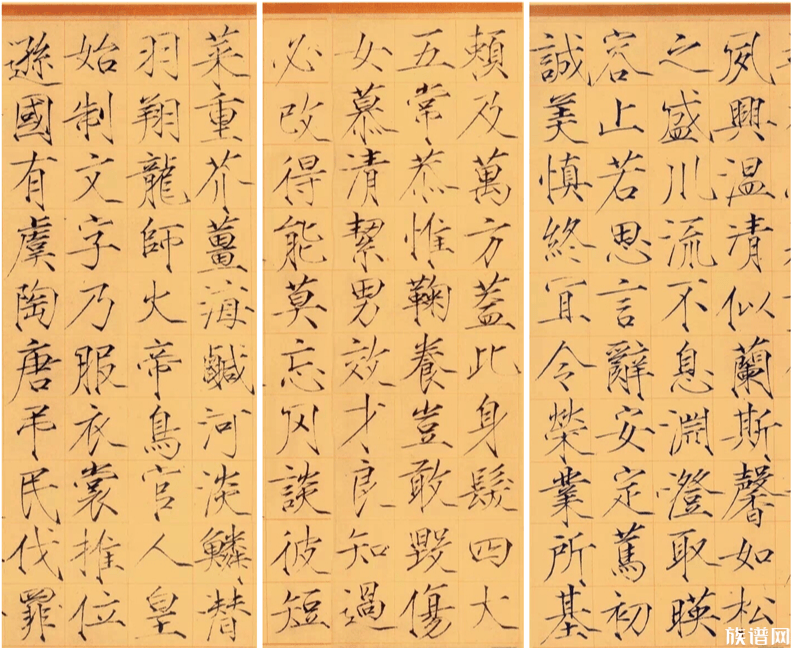 菜重芥薑海鹹河淡鱗潜
羽翔龍師火帝鳥官人皇
始制文字乃服衣裳推位
遜國有虞陶唐弔民伐罪
賴及萬方蓋此身髮四大
五常恭惟鞠養豈敢毀傷
女慕清絜男效才良知過
必改得能莫忘罔談彼短
夙興温凊似蘭斯馨如松
之盛川流不息淵澄取暎
容止若思言辭安定篤初
誠美慎終宜令榮業所基
族谱网